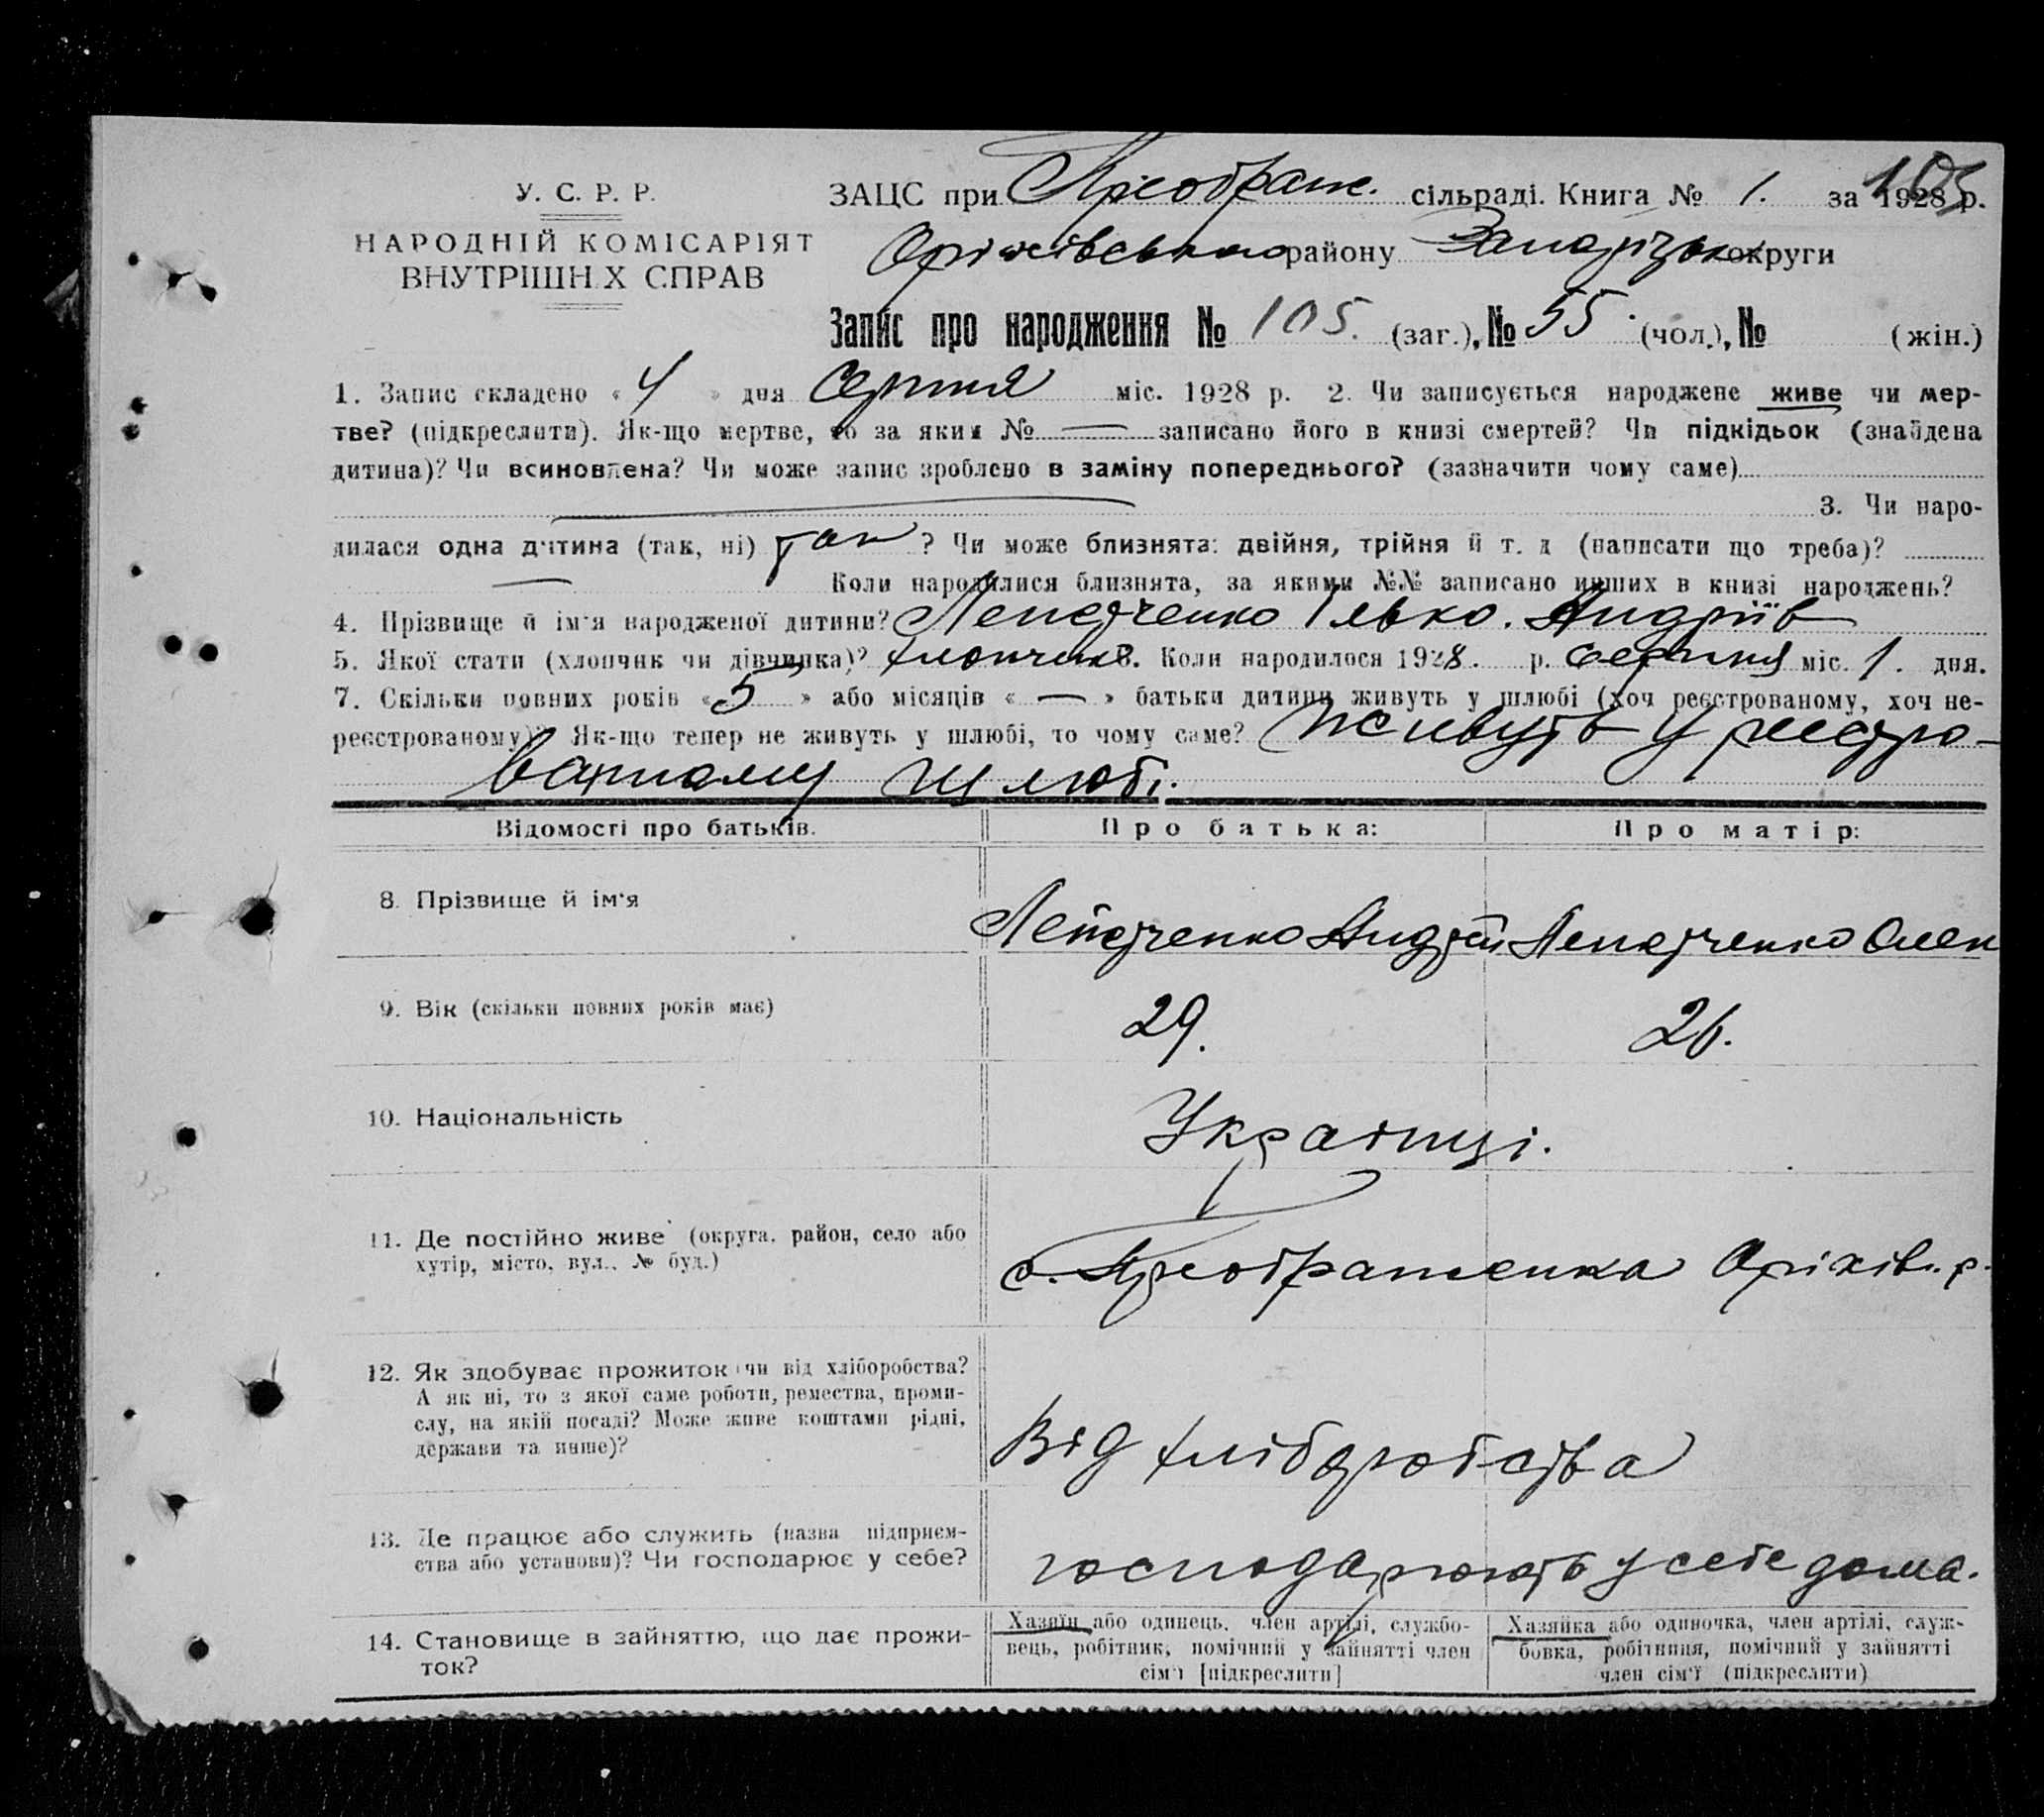 105
У. С. Р. Р.
НАРОДНІЙ КОМІСАРІЯТ
ВНУТРІШН Х СПРАВ
ЗАЦС при Преображ. сільраді. Книга № 1. за 1928 р.
Оріхівського району Запорізьк округи
Запис про народження № 105. (заг.), № 55. (чол.), № (жін.)
1. Запис складено « 4 » дня Серпня міс. 1928 р. 2. Чи записується народжене живе чи мер-
тве? (підкреслити). Як-що мертве, то за яким № — записано його в книзі смертей? Чи підкідьок (знайдена
дитина)? Чи всиновлена? Чи може запис зроблено в заміну попереднього? (зазначити чому саме)
3. Чи наро-
дилася одна дитина (так, ні) так ? Чи може близнята: двійня, трійня й т. д (написати що треба)?
— Коли народилися близнята, за якими №№ записано инших в книзі народжень?
4. Прізвище й ім'я народженої дитини? Лепетченко Ілько. Андріїв
5. Якої стати (хлопчик чи дівчинка)? хлопчик. Коли народилося 1928. р. серпня міс. 1. дня.
7. Скільки повних років « 5 » або місяців « — » батьки дитини живуть у шлюбі (хоч реєстрованому, хоч не-
реєстрованому)? Як-що тепер не живуть у шлюбі, то чому саме? Живуть у реєстро-
ванному шлюбі.
Відомості про батьків. Про батька: Про матір:
8. Прізвище й ім'я Лепетченко Андрій Лепетченко Олен
9. Вік (скільки повних років має) 29. 26.
10. Національність Українці.
11. Де постійно живе (округа, район, село або
хутір, місто, вул., № буд.)
с. Преображенка Оріхів. р.
12. Як здобуває прожиток чи від хліборобства?
А як ні, то з якої саме роботи, ремества, проми-
слу, на якій посаді? Може живе коштами рідні,
держави та инше)?
Від хліборобства
13. Де працює або служить (назва підприєм-
ства або установи)? Чи господарює у себе?
господарюють у себе дома.
14. Становище в зайняттю, що дає прожи-
ток?
Хазяїн або одинець, член артілі, службо-
вець, робітник, помічний у зайнятті член
сім'ї [підкреслити]
Хазяйка або одиночка, член артілі, служ-
бовка, робітниця, помічний у зайнятті
член сім'ї (підкреслити)